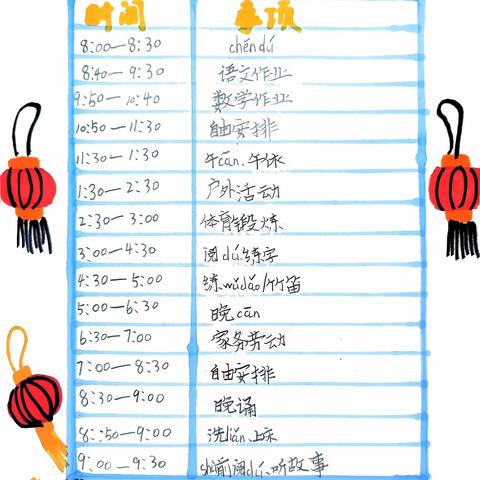 时间 事项
8:00—8:30 chéndú
8:40—9:30 语文作业
9:50—10:40 数学作业
10:50—11:30 自由安排
11:30—1:30 午cān、午休
1:30—2:30 户外活动
2:30—3:00 体育锻炼
3:00—4:30 阅dú、练字
4:30—5:00 练wǔdǎo/竹笛
5:00—6:30 晚cān
6:30—7:00 家务劳动
7:00—8:30 自由安排
8:30—9:00 晚诵
8:50—9:00 洗liǎn、上床
9:00—9:30 shuì前阅dú、听故事